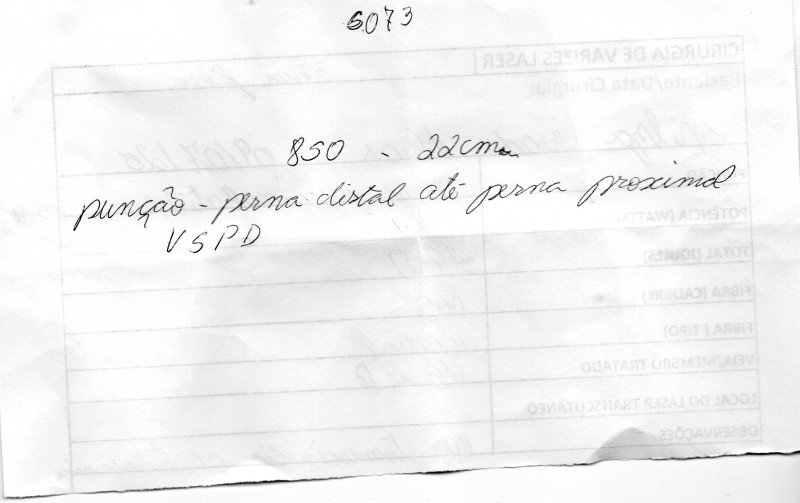 6073
850 - 22cm
punção - perna distal até perna proximal
VSPD
CIRURGIA DE VARIZES LASER
Paciente/Data Cirurgia:
09/07/25
POTÊNCIA (WATTS)
TOTAL (JOULES)
FIBRA (CALIBRE)
FIBRA (TIPO)
VEIA/MEMBRO TRATADO
LOCAL DO LASER TRANSCUTÂNEO
OBSERVAÇÕES